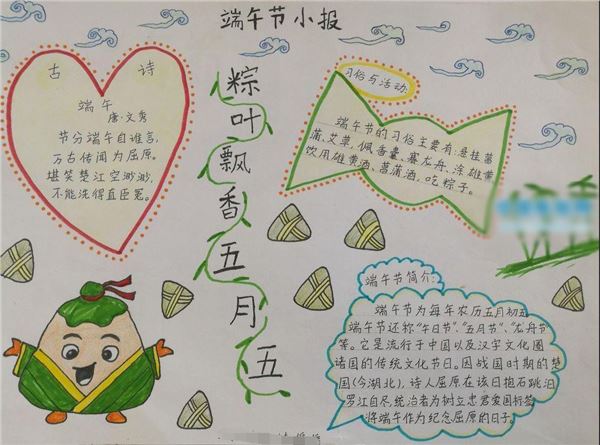 端午节小报
古诗
端午
唐·文秀
节分端午自谁言,
万古传闻为屈原。
堪笑楚江空渺渺,
不能洗得直臣冤。
粽叶飘香五月五
习俗与活动
端午节的习俗主要有:悬挂菖
蒲、艾草,佩香囊,赛龙舟,涂雄黄
饮用雄黄酒、菖蒲酒,吃粽子。
端午节简介:
端午节为每年农历五月初五
端午节还称“午日节”、“五月节”、“龙舟节”
等。它是流行于中国以及汉字文化圈
诸国的传统文化节日。因战国时期的楚
国(今湖北),诗人屈原在该日抱石跳汨
罗江自尽,统治者为树立忠君爱国标签
将端午作为纪念屈原的日子。